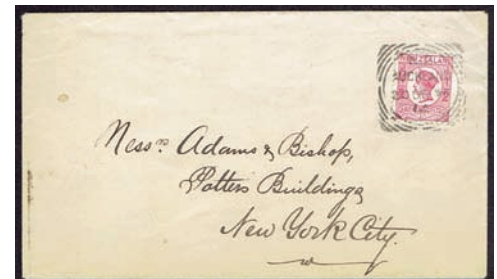 Mess.rs Adams & Bishop,
Potters Buildings
New York City.